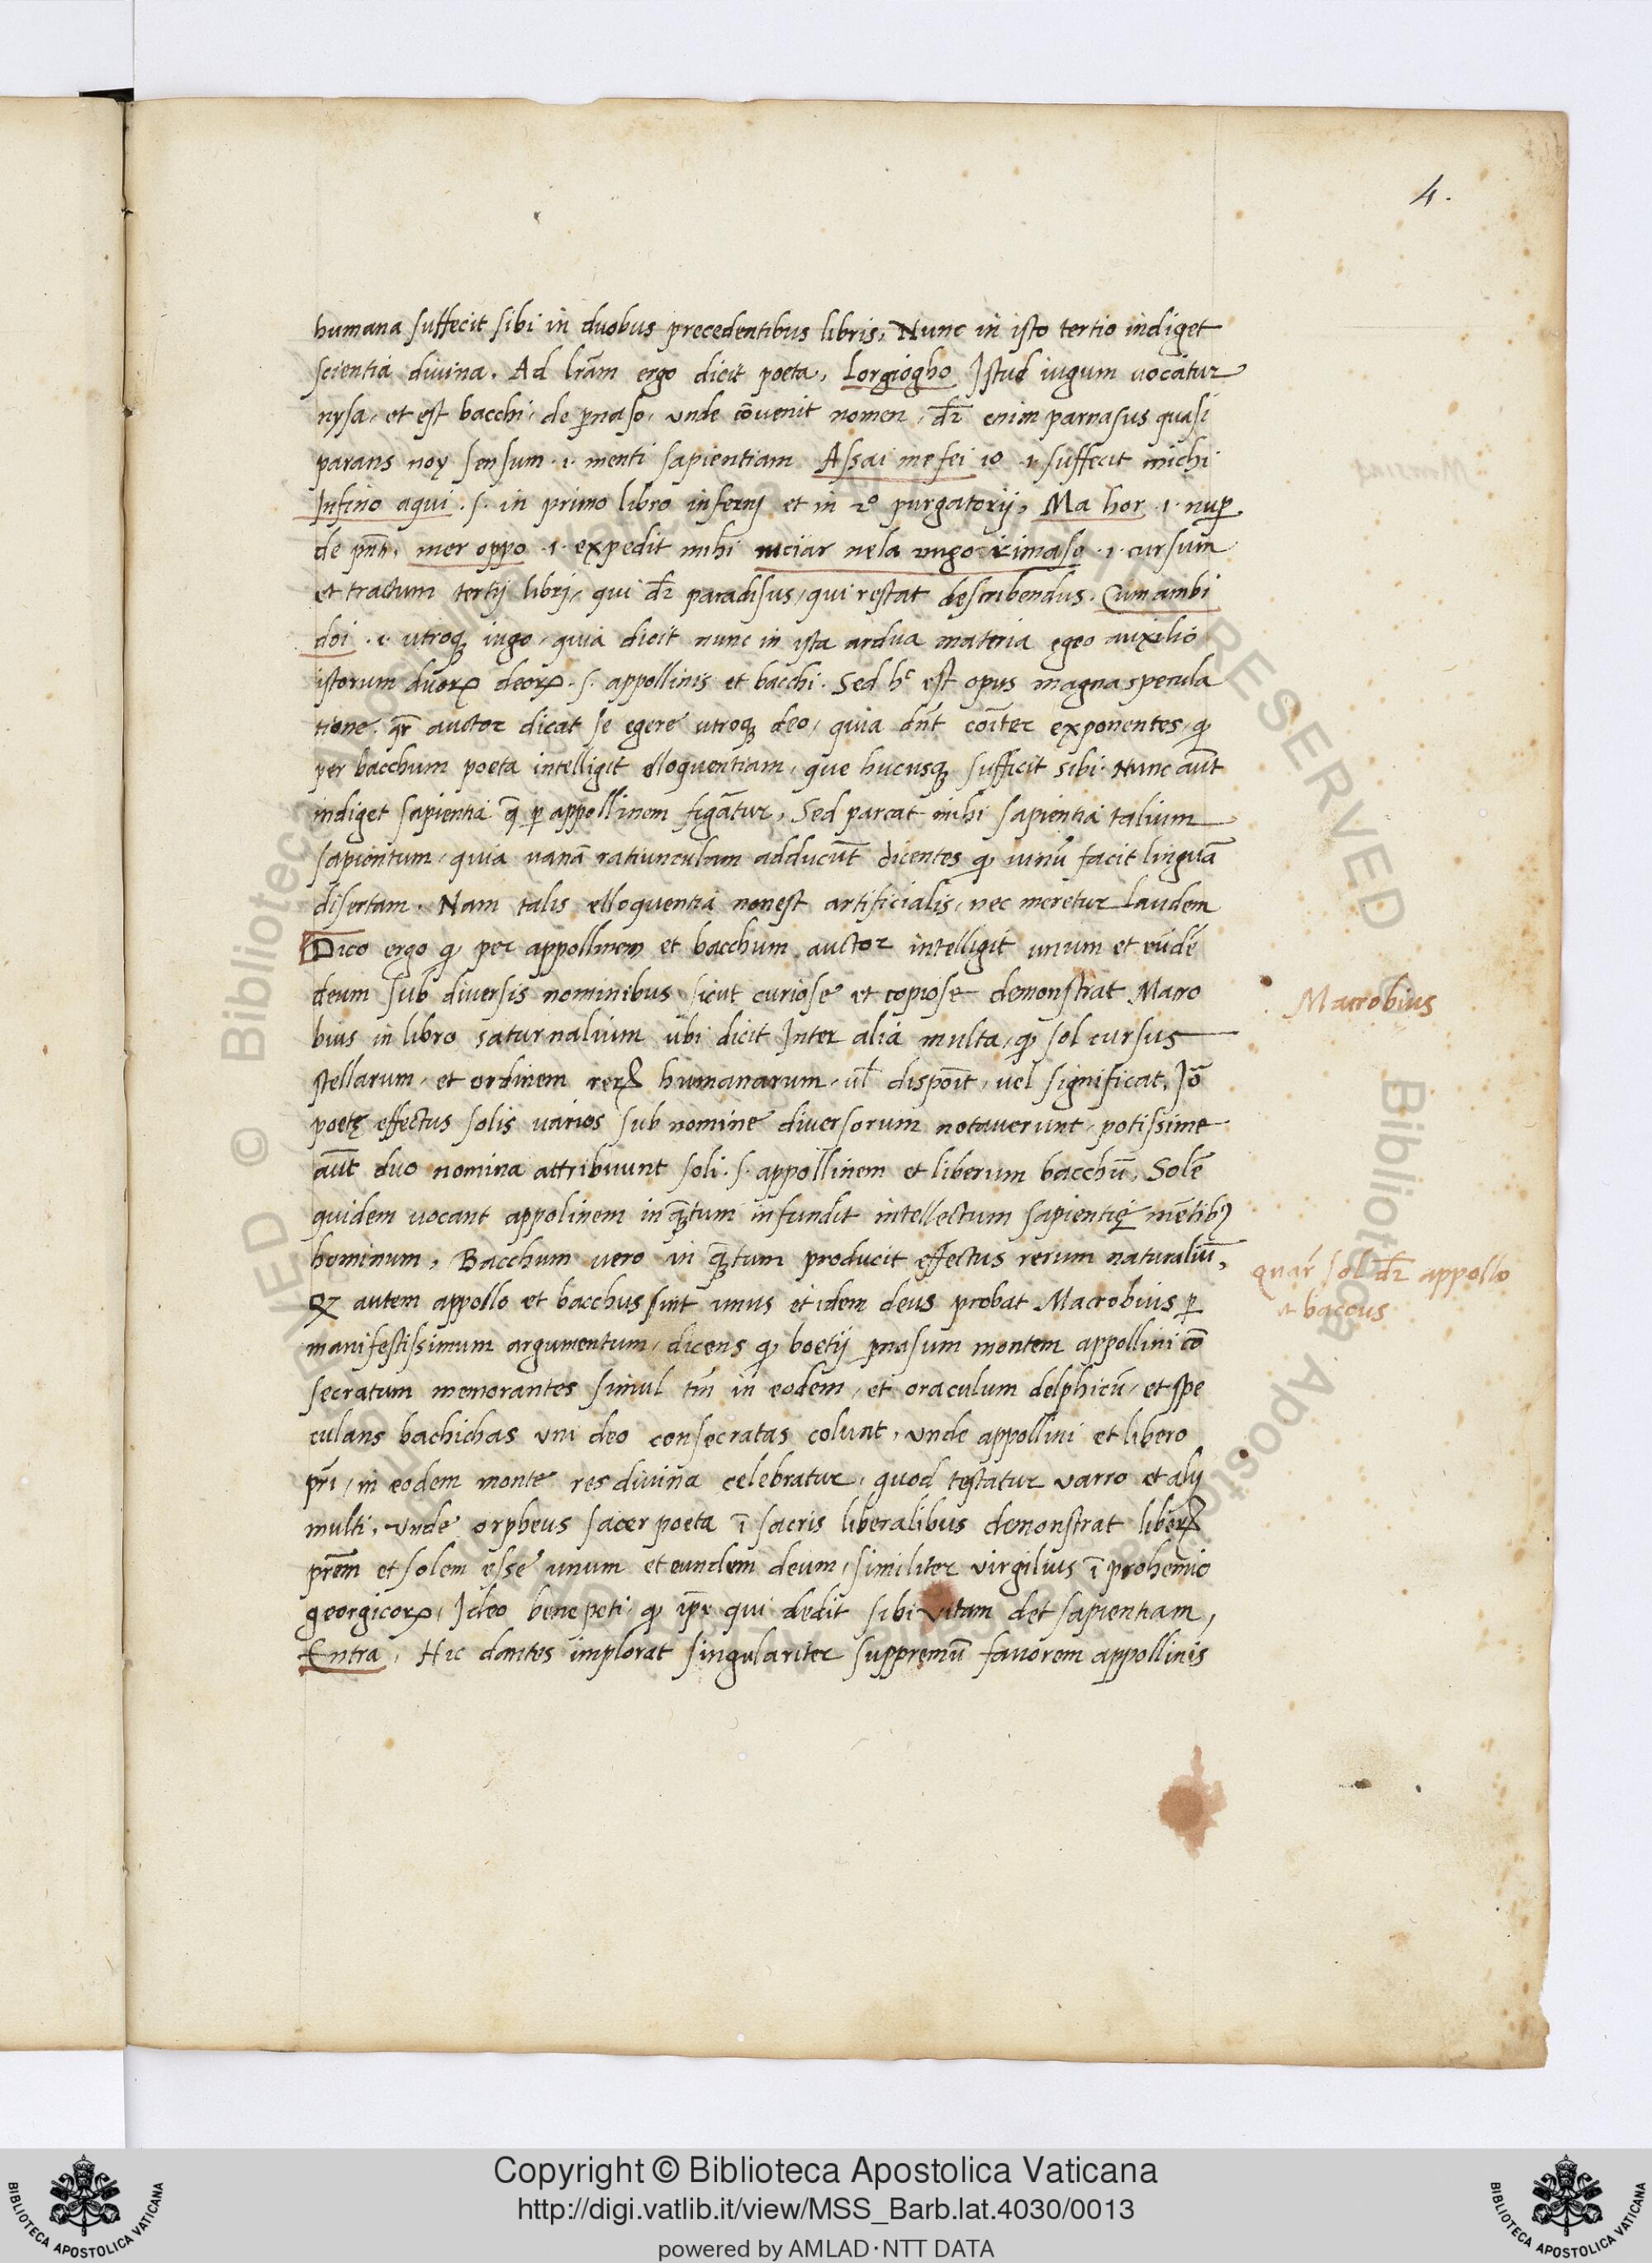 4.
humana suffecit sibi in duobus precedentibus libris, Nunc in isto tertio indiget
scientia divina. Ad lr̃am ergo dicit poeta, Lorgiogho Istud iugum vocatur
nysa, et est bacchi, de ꝑnaso, unde cõvenit nomen, dr̃ enim parnasus quasi
parans noy sensum .i. menti sapientiam Assai me fei io .i. suffecit michi
Infino aqui .s. in primo libro inferni et in 2º purgatorij, Ma hor .i. nuꝑ
de pñti, mer oppo .i. expedit mihi .i. cursum
et tractum tertij libri, qui dr̃ paradisus, qui restat describendus. Cum ambi
doi .i. utroqꝫ iugo, quia dicit nunc in ista ardua materia egeo auxilio
istorum duoꝝ deoꝝ .s. appollinis et bacchi. Sed hᶜ est opus magna specula
tione. qr̃ auctor dicat se egere utroqꝫ deo, quia dn̄t cõiter exponentes, ꝙ
per bacchum poeta intelligit elloquentiam, que hucusqꝫ sufficit sibi. Nunc aũt
indiget sapientia q̃ ꝑ appollinem figãtur, Sed parcat mihi sapientia talium
sapientum, quia vanã ratiunculam adducũt dicentes ꝙ vinũ facit linguã
disertam. Nam talis elloquentia non est artificialis, nec meretur laudem
Dico ergo ꝙ per appollinem et bacchum auctor intelligit unum et eũdẽ
deum sub diversis nominibus sicut curiose et copiose demonstrat Macro
bius in libro saturnalium ubi dicit Inter alia multa, ꝙ sol cursus
stellarum, et ordinem rerꝝ humanarum, ul̃ dispõit, vel significat, Iõ
poetę effectus solis varios sub nomine diversorum notaverunt, potissime
aũt duo nomina attribuunt soli .s. appollinem et liberum bacchũ, Solẽ
quidem vocant appolinem in q̃tum infundit intellectum sapientię mẽtibꝰ
hominum, Bacchum vero in q̃tum producit effectus rerum naturaliũ,
Qꝫ autem appollo et bacchus sint unus et idem deus probat Macrobius ꝑ
manifestissimum argumentum, dicens ꝙ boetij ꝑnasum montem appollini cõ
secratum memorantes simul tm̃ in eodem, et oraculum delphicũ, et spe
culans bachichas uni deo consecratas colunt, unde appollini et libero
pr̃i, in eodem monte res divina celebratur, quod testatur varro et alij
multi, unde orpheus sacer poeta ĩ sacris liberalibus demonstrat liberꝝ
prẽm et solem esse unum et eundem deum, similiter virgilius ĩ prohemio
georgicoꝝ, Ideo bene peti ꝙ ip̃e qui dedit sibi vitam det sapientiam,
Entra, Hic dantes implorat singulariter suppremũ favorem appollinis
Macrobius
quar̃ sol dr̃ appollo
et baccus
Copyright © Biblioteca Apostolica Vaticana
http://digi.vatlib.it/view/MSS_Barb.lat.4030/0013
powered by AMLAD·NTT DATA
BIBLIOTECA APOSTOLICA VATICANA
BIBLIOTECA APOSTOLICA VATICANA